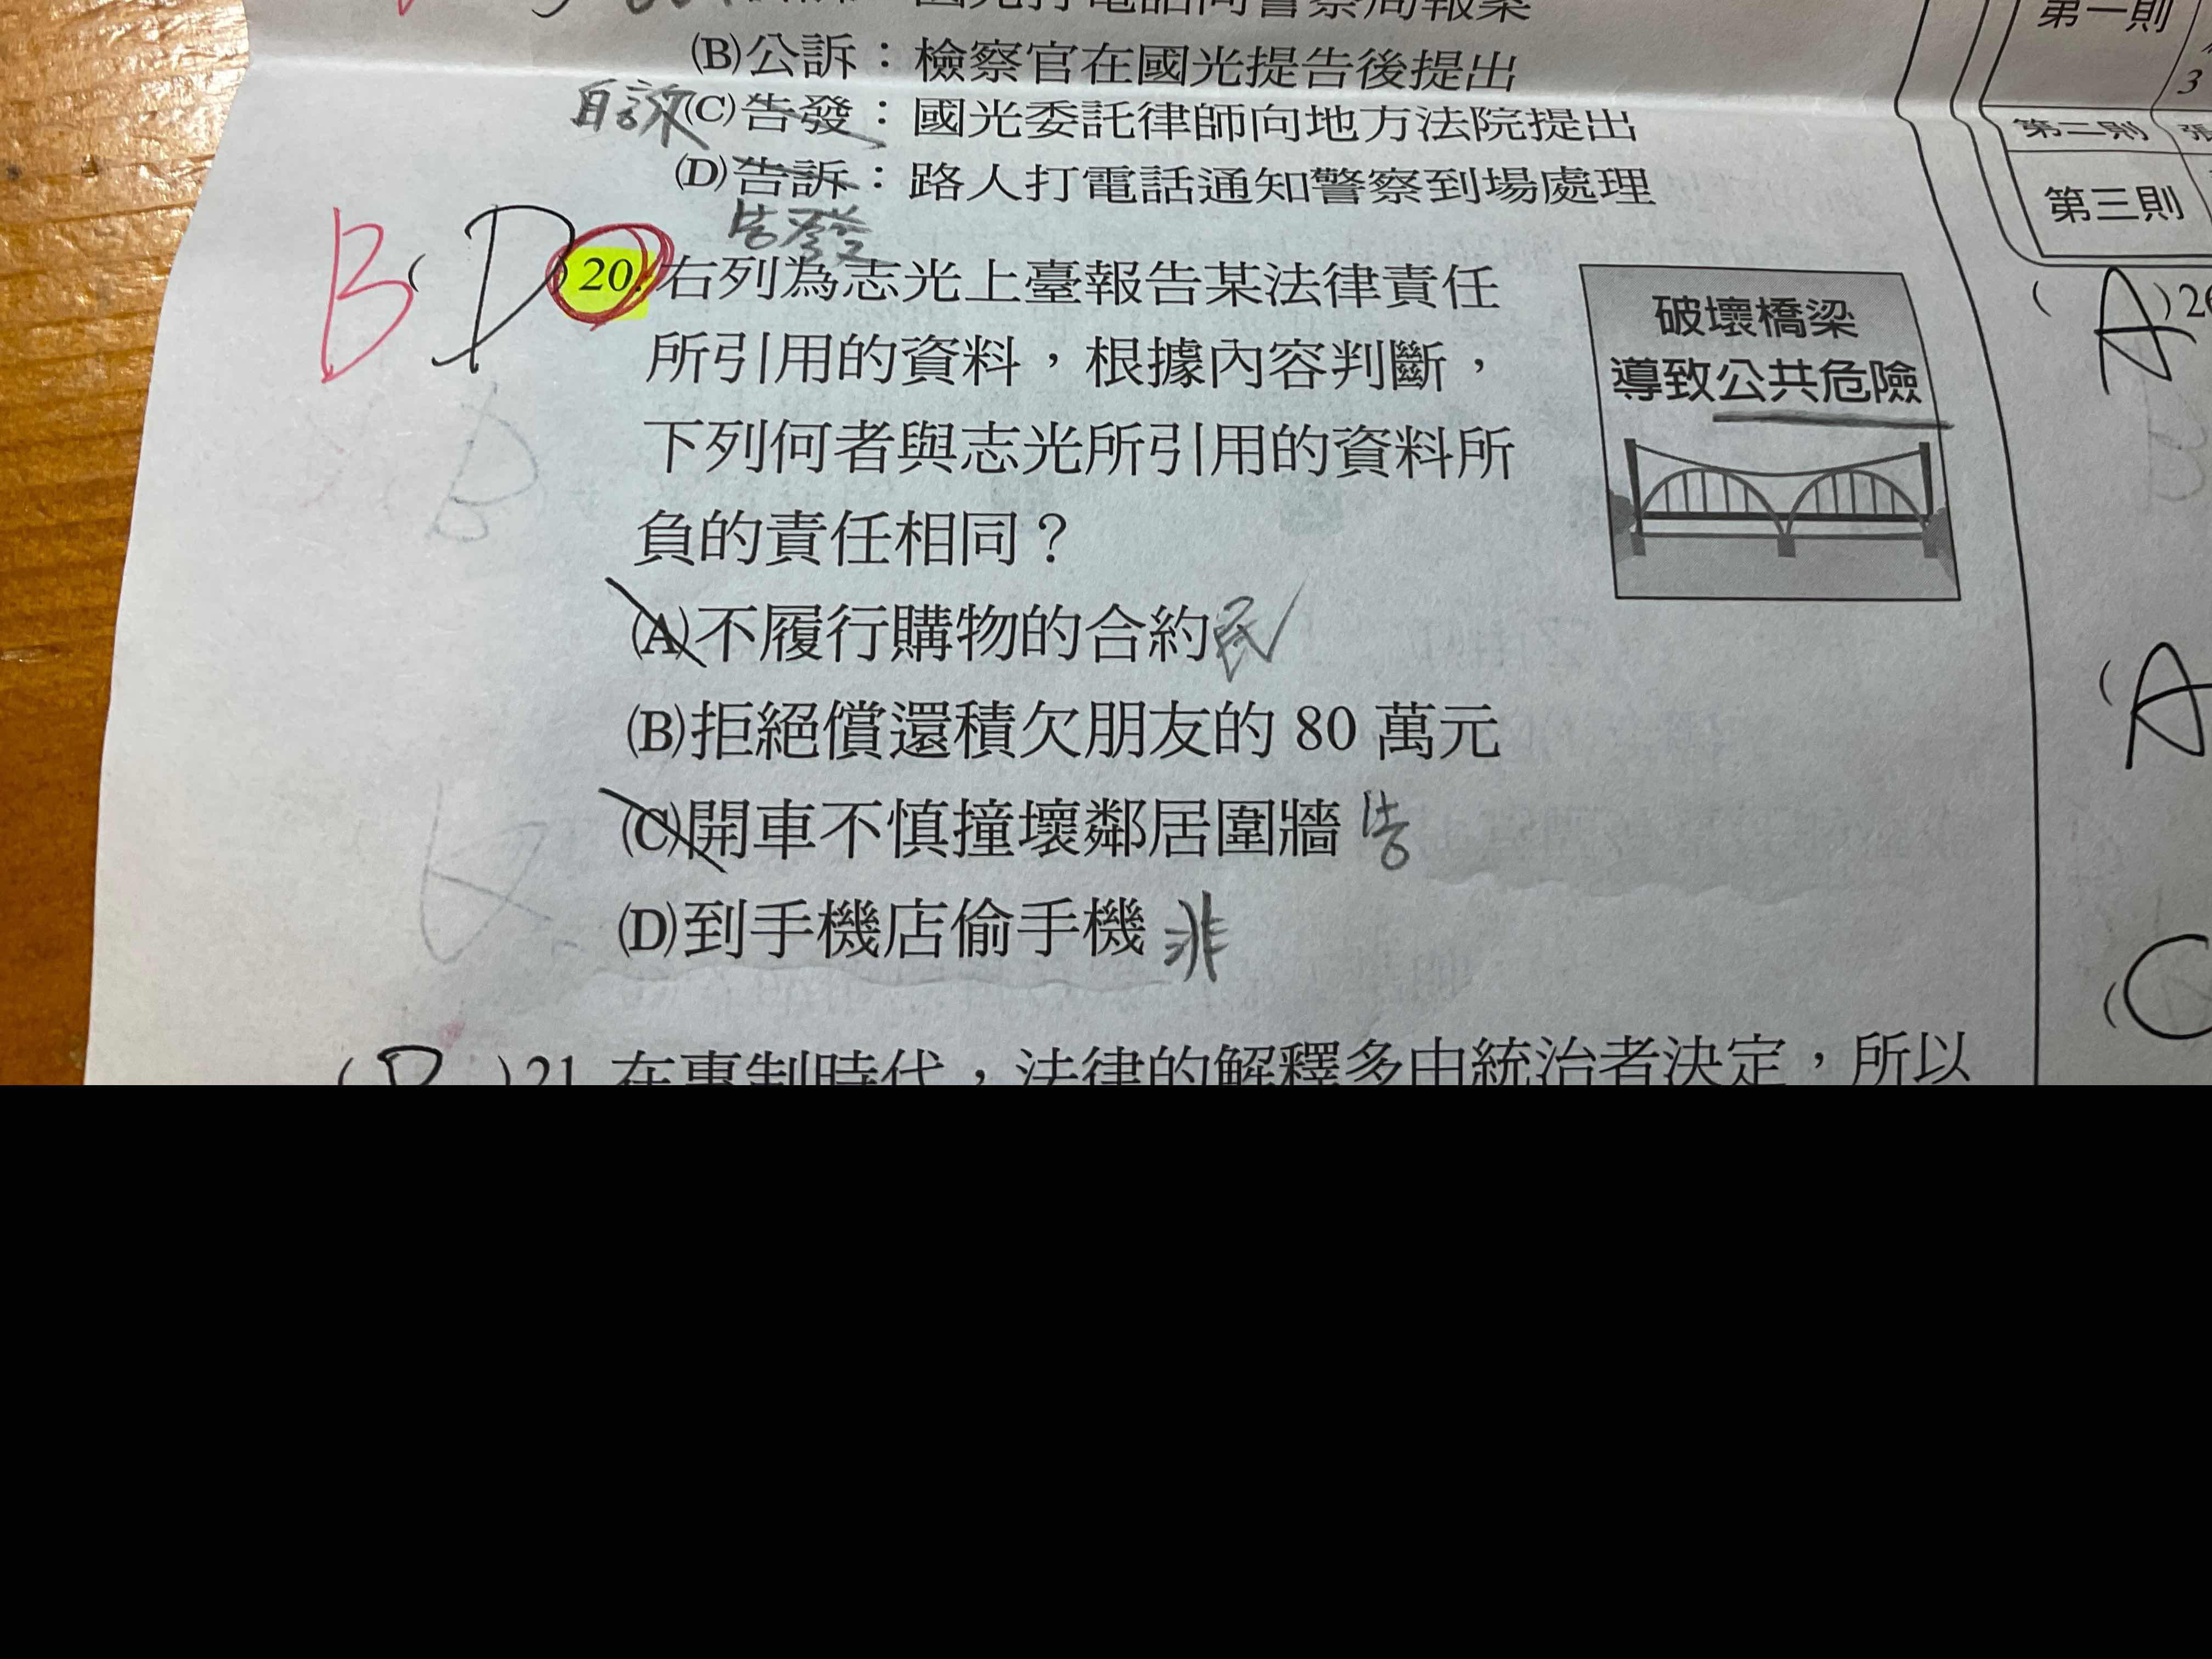 (B)公訴：檢察官在國光提告後提出
自訴(C)告發：國光委託律師向地方法院提出
(D)告訴：路人打電話通知警察到場處理
告發
B(D)20.右列為志光上臺報告某法律責任
所引用的資料，根據內容判斷，
下列何者與志光所引用的資料所
負的責任相同？
(A)不履行購物的合約民
(B)拒絕償還積欠朋友的 80 萬元
(C)開車不慎撞壞鄰居圍牆告
(D)到手機店偷手機非
破壞橋梁
導致公共危險
( )21.在專制時代，法律的解釋多由統治者決定，所以
第一則
3
第二則
第三則
(A)26
(A
(C